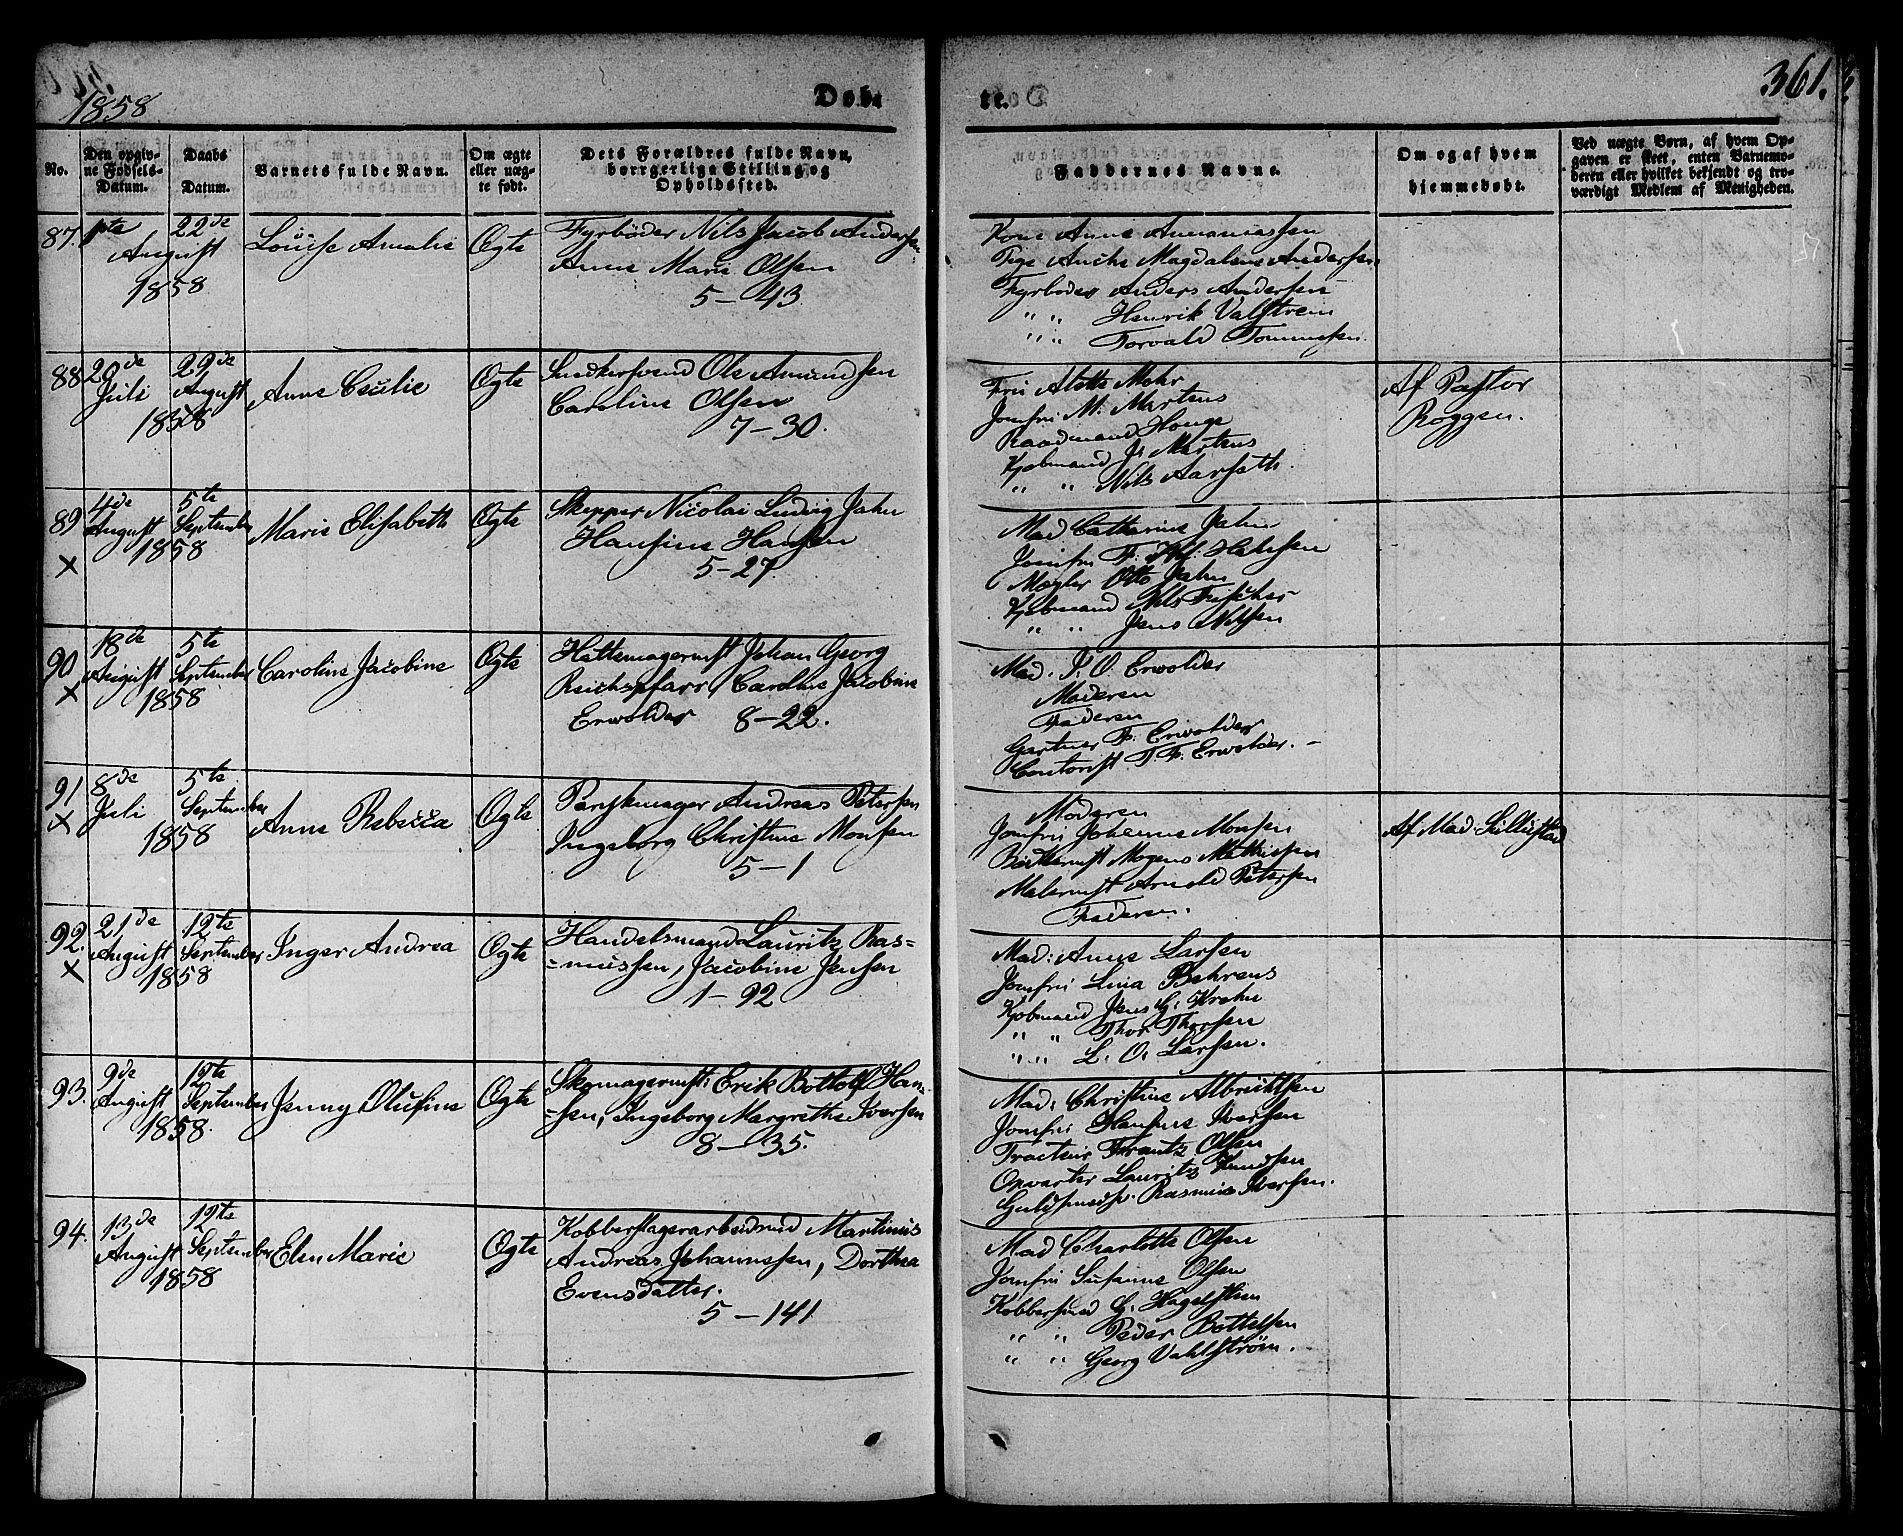 1858
Døb-
te.
361.
No.
Den opgiv-
ne Fødsels-
Datum.
Daabs
Datum.
Barnets fulde Navn.
Om ægte
eller uæg-
te født.
Dets Forældres fulde Navn,
borgerlige Stilling og
Opholdssted.
Faddernes Navne.
Om og af hvem
hjemmedøbt.
Ved uægte Børn, af hvem Op-
gaven er skeet, enten Barnemo-
deren eller hvilket bekjendt og tro-
værdigt Medlem af Menigheden.
87. 1ste August 1858
22de
Louise Amalie
Ægte
Fyrbøder Nils Jacob Andersen
Anne Marie Olsen
5-43.
Kone Anne Ananiassen
Pige Anche Magdalene Andersen
Fyrbøder Anders Andersen
" " Henrik Valstrem
" " Torvald Tommesen.
88. 20de Juli
29de August
1858
Anne Cecilie
Ægte
Snedkersvend Ole Amundsen
Caroline Olsen
7-30.
Fru Alette Mohr
Jomfru M. Martens
Raadmand Konge
Kjøbmand J. Martens
" " Nils Aarseth.
Af Pastor
Roggen.
89 x
4de August
5te September
1858
Marie Elisabeth
Ægte
Skipper Nicolai Ludvig Jahn
Hansine Hansen
5-27.
Mad Cathrine Jahn
Jomfru F. Hansen
Mægler Otto Jahn
Kjøbmand Nils Fischer
" " Jens Nilsen
90 x
18de August
5te September
1858
Caroline Jacobine
Ægte
Hattemagermst Johan Georg
Reichspfarr, Caroline Jacobine
Erwolder 8-22.
Mad. J. O. Erwolder
Moderen
Faderen
Gartner F. Erwolder
Contorist T. F. Erwolder.-
91 x
8de Juli
5te September
1858
Anne Rebecca
Ægte
Parykmager Andreas Petersen
Ingeborg Christine Monsen
5-1
Moderen
Jomfru Johanne Monsen
Bødkermst Mogens Mathisen
Malermst Arnold Petersen
Faderen.
Af Mad. Sillestad
92. x
21de August
12te September
1858
Inger Andrea
Ægte
Handelsmand Lauritz Ras=
=mussen, Jacobine Jensen
1-92
Mad: Anne Larsen
Jomfru Lina Behrens
Kjøbmand Jens G. Krohn
" " Thor Thorsen
" " L. O. Larsen.
93.
9de August
12te September
1858.
Jenny Olufine
Ægte
Skomagermst: Erik Bottolf Han-
=sen, Ingeborg Margrethe Iversen
8-35.
Mad: Christine Albrechtsen
Jomfru Hansine Iversen
Tracteur Frantz Olsen
Opvarter Lauritz Knudsen
Guldsmedsv. Rasmus Iversen.
94.
13de August
12te September
1858
Elen Marie
Ægte
Kobberslagerarbeidsmd Martinus
Andreas Johannessen, Dorthea
Evensdatter.
5-141
Mad Charlotte Olsen
Jomfru Susanne Olsen
Kobbersmed G. Hagelstien
" " Peder Bottelsen
" " Georg Vahlstrøm.